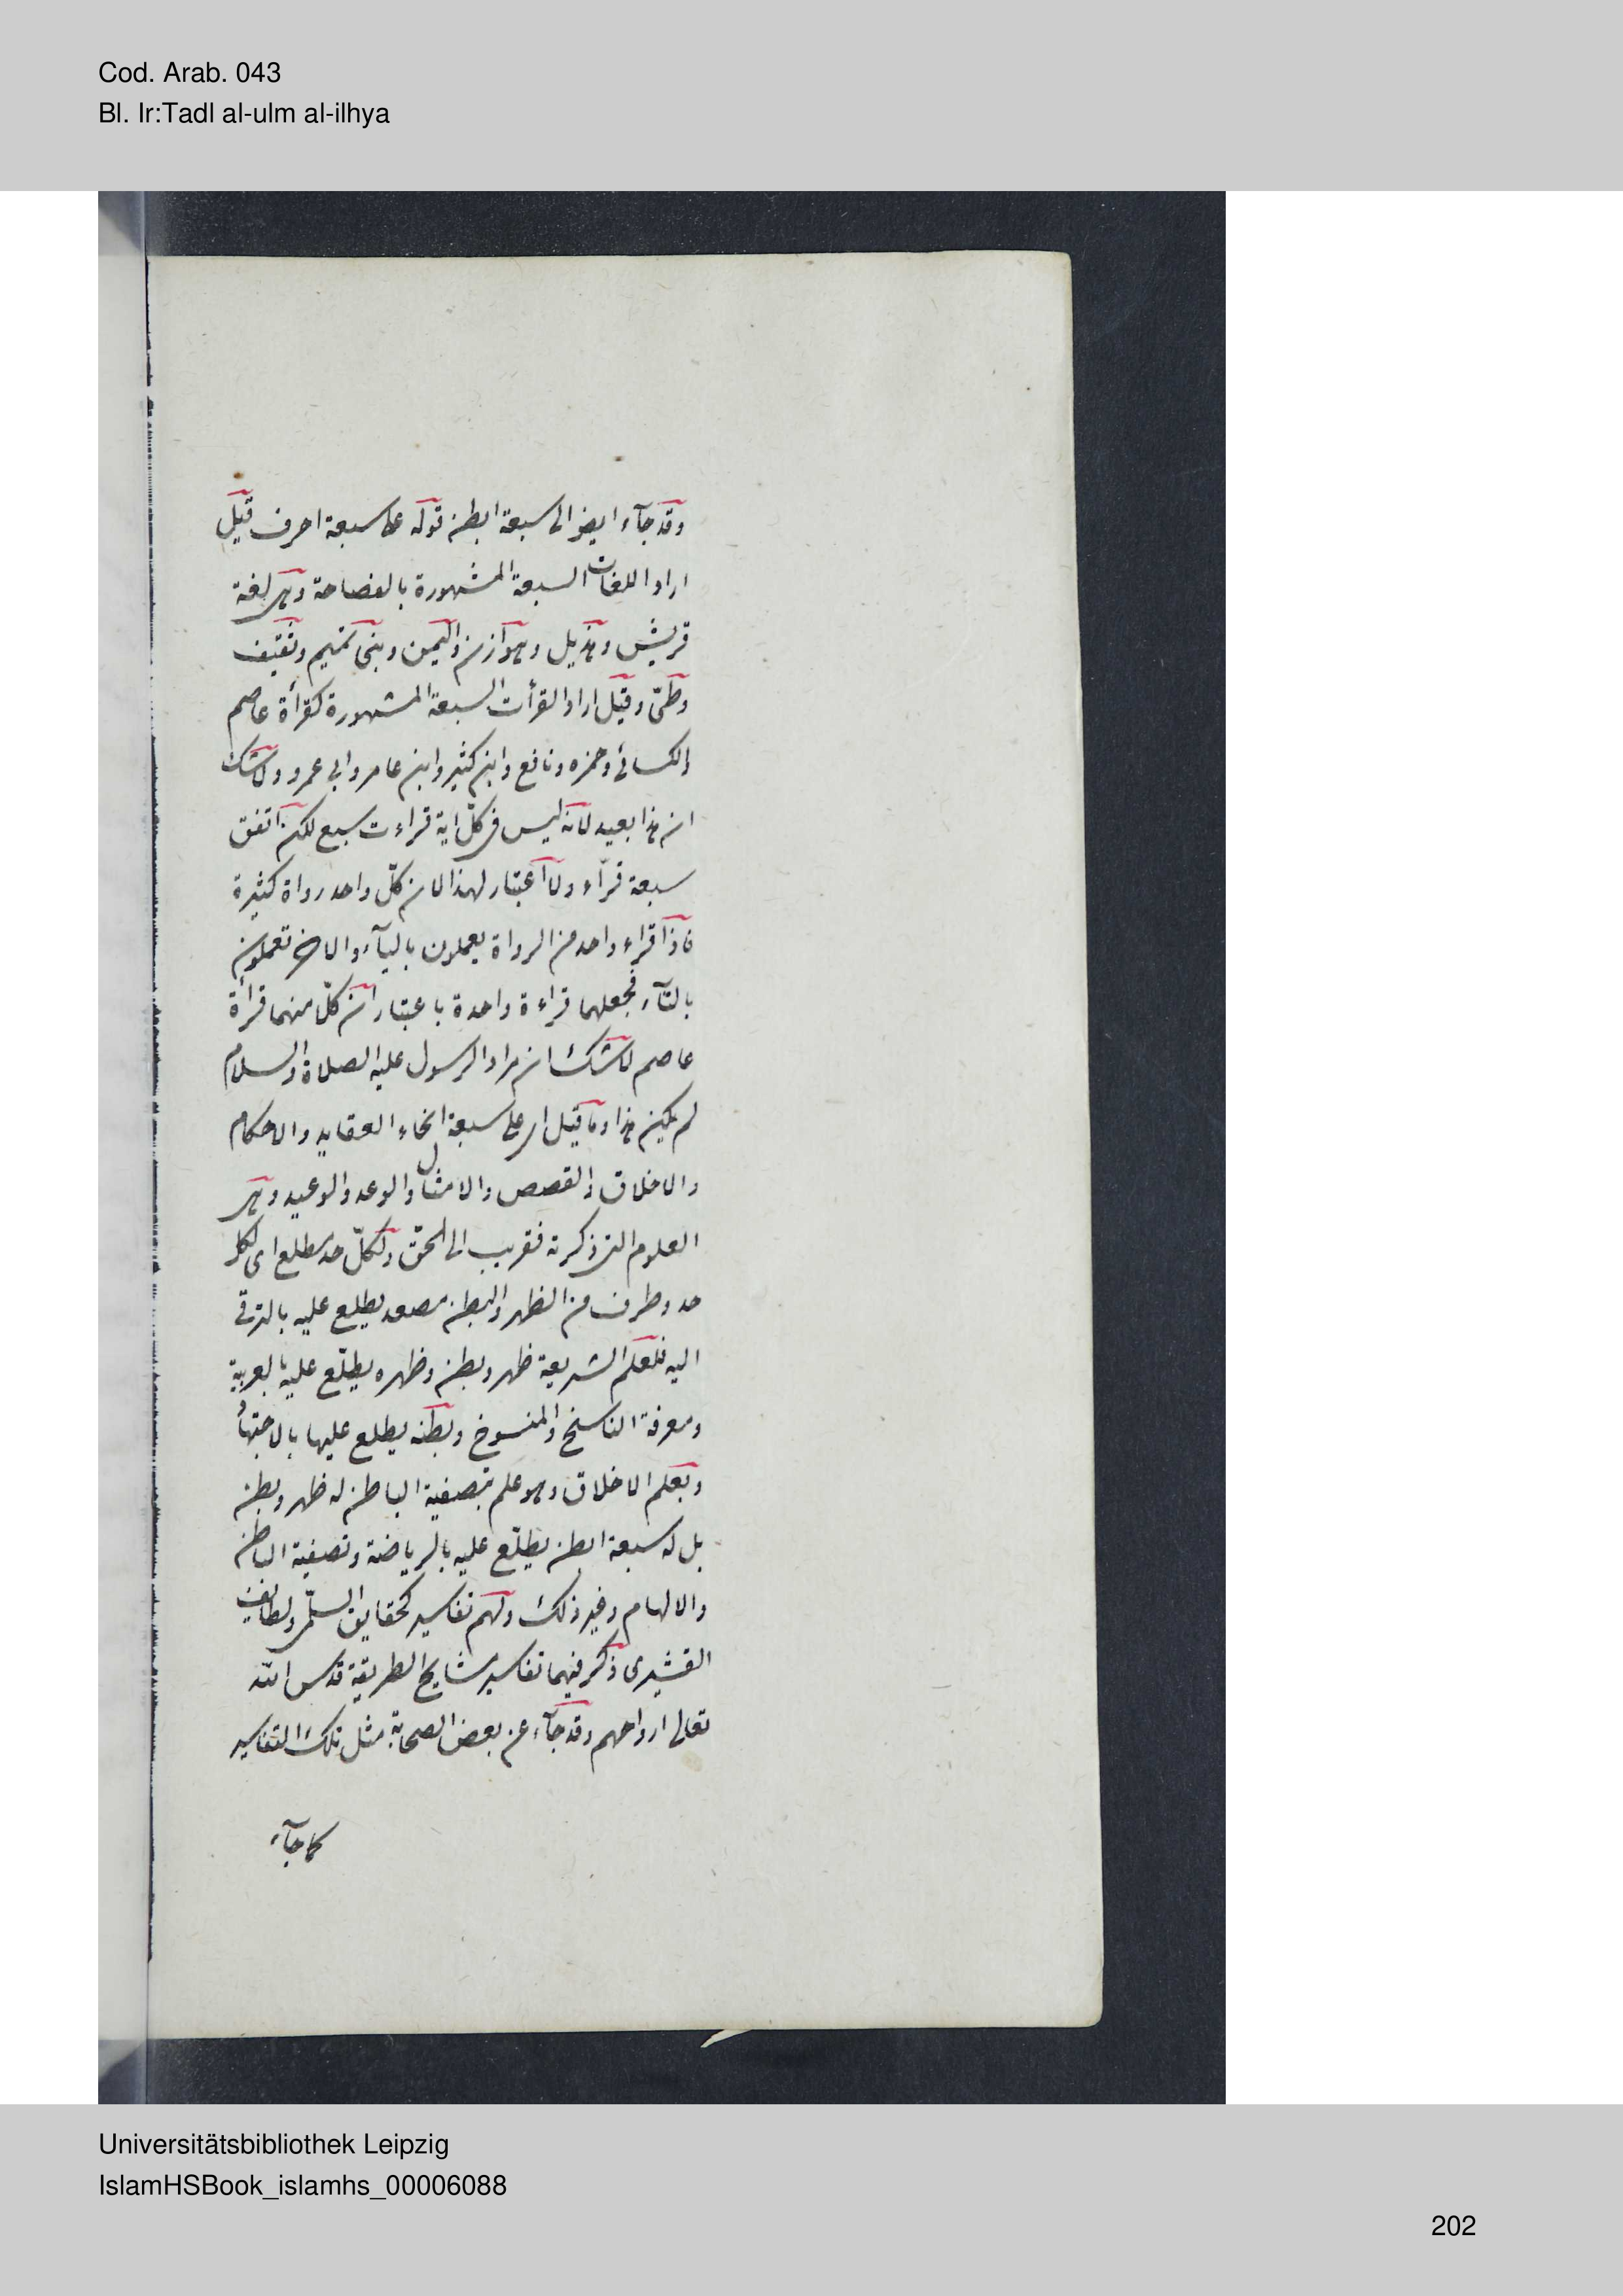 Cod. Arab. 043
Bl. Ir:Tadl al-ulm al-ilhya
وقد جآء ايضا الى سبعة ابطن قوله على سبعة احرف قيل
اراد اللغات السبعة المشهورة بالفصاحة وهى لغة
قريش وهذيل وهوازن واليمن وبنى تميم وثقيف
وطىّ وقيل اراد القرأت السبعة المشهورة كقرأة عاصم
والكسائى وحمزه ونافع وابن كثير وابن عامر وابى عمرو ولا شك
ان هذا بعيد لانه ليس فى كلّ اية قراءت سبع لكن اتفق
سبعة قرّاء ولا اعتبار لهذا لان كلّ واحد رواة كثيرة
فاذا قراء واحد من الرواة يعملون باليآء والاخر تعملون
بالتآء فجعلهما قراءة واحدة باعتبار ان كلّ منهما قرأة
عاصم لا شك ان مراد الرسول عليه الصلاة والسلام
لم يكن هذا وما قيل اى على سبعة انحاء العقايد والاحكام
والاخلاق والقصص والامثال والوعد والوعيد وهى
العلوم التى ذكرته فقريب الى الحقّ ولكلّ حد مطلع اى لكل
حد وطرف من الظهر والبطن مصعد يطلع عليه بالترقى
اليه فلعلم الشريعة ظهر وبطن وظهره يطلّع عليه بالعربية
ومعرفة الناسخ والمنسوخ وبطنه يطلع عليها بالاجتهاد
وبعلم الاخلاق وهو علم بتصفية الباطن له ظهر وبطن
بل له سبعة ابطن يطلّع عليه بالرياضة وتصفية الباطن
والالهام وغير ذلك ولهم تفاسير كحقايق السلّمى ولطايف
القشيرى ذكر فيهما تفاسير مشايخ الطريقة قدس الله
تعالى ارواحهم وقد جآء عن بعض الصحابة مثل تلك التفاسير
كما جآء
Universitätsbibliothek Leipzig
IslamHSBook_islamhs_00006088
202